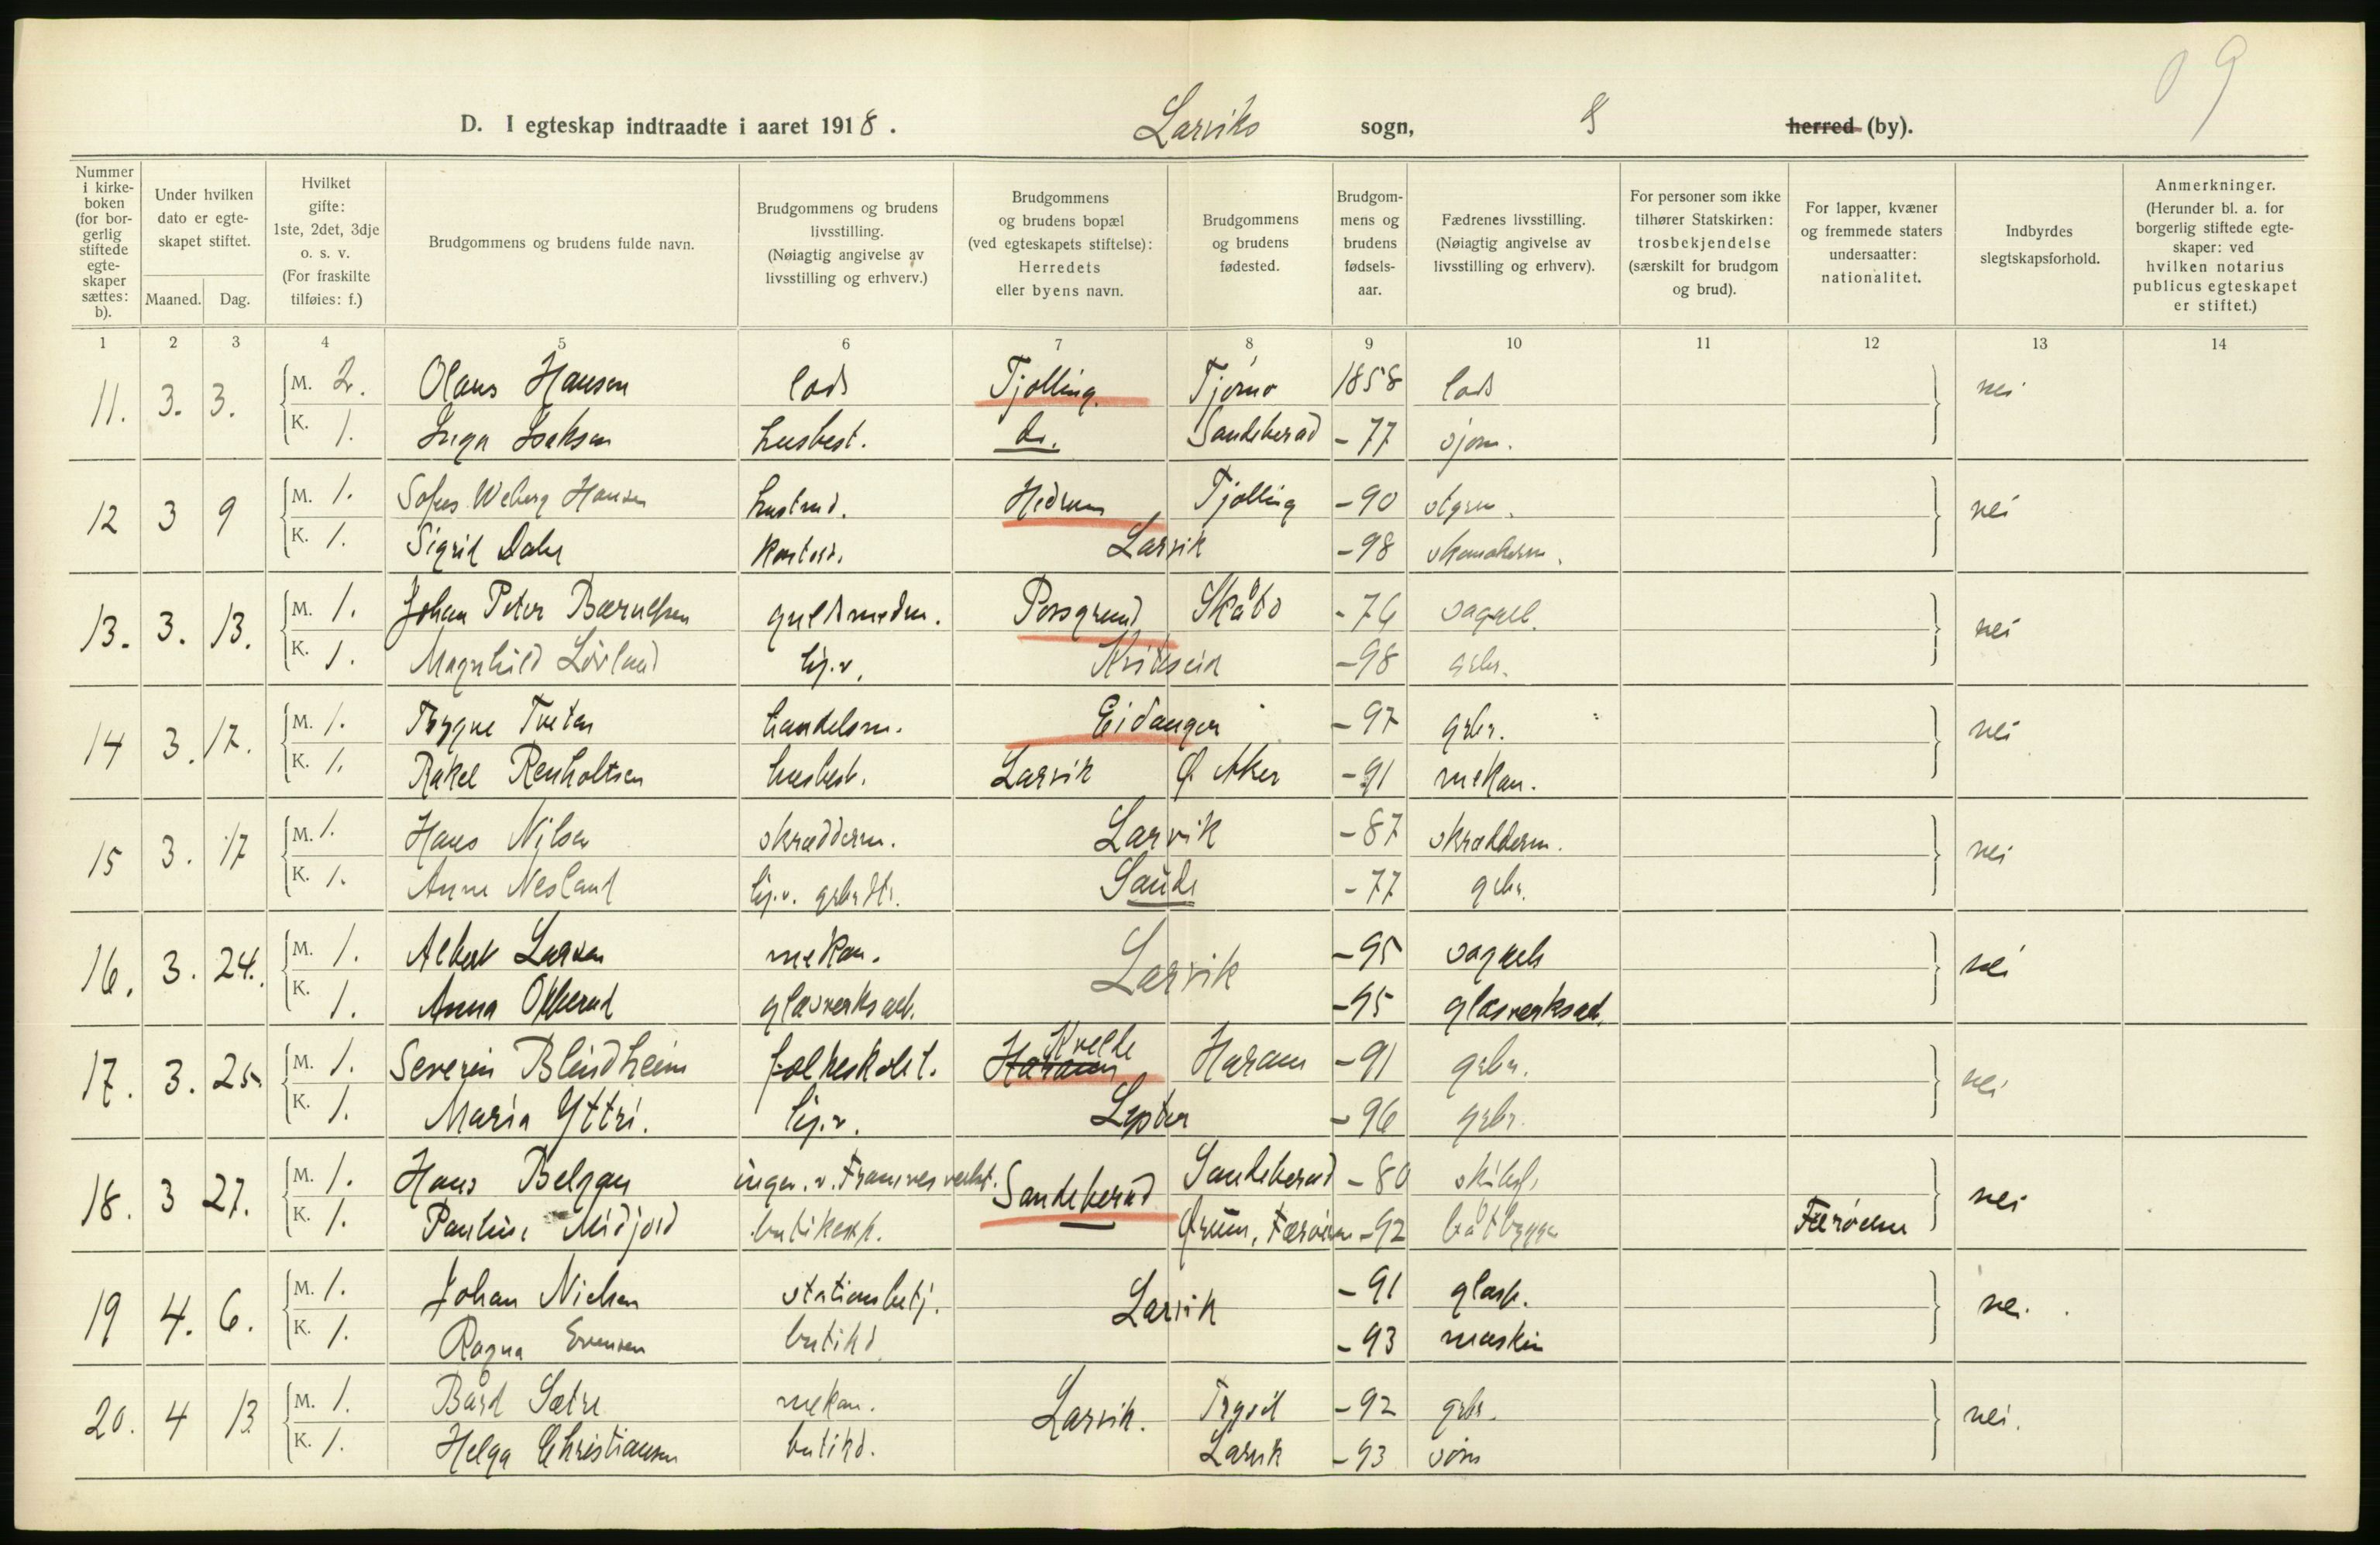 09
D. I egteskap indtraadte i aaret 1918. Larviks sogn, herred (by).
Nummer i kirkeboken (for borgerlig stiftede egteskaper sættes: b).
Under hvilken dato er egteskapet stiftet.
Maaned. Dag.
Hvilket gifte: 1ste, 2det, 3dje o. s. v. (For fraskilte tilføies: f.)
Brudgommens og brudens fulde navn.
Brudgommens og brudens livsstilling. (Nøiagtig angivelse av livsstilling og erhverv.)
Brudgommens og brudens bopæl (ved egteskapets stiftelse): Herredets eller byens navn.
Brudgommens og brudens fødested.
Brudgommens og brudens fødselsaar.
Fædrenes livsstilling. (Nøiagtig angivelse av livsstilling og erhverv).
For personer som ikke tilhører Statskirken: trosbekjendelse (særskilt for brudgom og brud).
For lapper, kvæner og fremmede staters undersaatter: nationalitet.
Indbyrdes slegtskapsforhold.
Anmerkninger. (Herunder bl. a. for borgerlig stiftede egteskaper: ved hvilken notarius publicus egteskapet er stiftet.)
1 2 3 4 5 6 7 8 9 10 11 12 13 14
11. 3. 3. M. 2. Olaus Hansen lods Tjølling. Tjømø 1858 lods nei
K. 1. Inga Isaksen husbest. do. Sandeherad -77 sjøm.
12 3 9 M. 1. Sofus Weberg Hansen Hedrum Tjølling -90 nei
K. 1. Sigrid Dahl Larvik -98
13. 3. 13. M. 1. Johan Peter guldsmedm. Porsgrund Skåtø -76 nei
K. 1. Magnhild Løvland hj.v. Kviteseid -98 grbr.
14 3. 17. M. 1. Trygve Tveten handelsm. Eidanger -97 grbr. nei
K. 1. Rakel Renholtsen husbest. Larvik Ø. Aker -91 mekan.
15 3. 17 M. 1. Hans Nilsen skrædderm. Larvik -87 skrædderm. nei
K. 1. Anne Nesland hj.v. grbrdtr. Saude -77 gbr.
16. 3. 24. M. 1. Albert Larsen mekan. Larvik -95 nei
K. 1. Anna glasverksarb. -95 glasverksarb.
17. 3. 25. M. 1. Severin Blindheim folkeskolel. Haram Kvelde Haram -91 grbr. nei
K. 1. Maria Yttri. hj.v. Lyster -96 grbr.
18. 3 27. M. 1. Hans Belgau ingen. v. Framnes verkst. Sandeherad Sandeherad -80 skibsf. nei
K. 1. Pauline Midjord butikeksp. Færøerne -92 båtbygger Færøerne
19 4. 6. M. 1. Johan Nielsen stationsbetj. Larvik -91 glasb. nei.
K. 1. Ragna Evensen butikd. -93 maskin
20. 4 13 M. 1. Bård Sætre mekan. Larvik. Trysil -92 grbr. nei.
K. 1. Helga Christiansen butikd. Larvik -93 sjøm